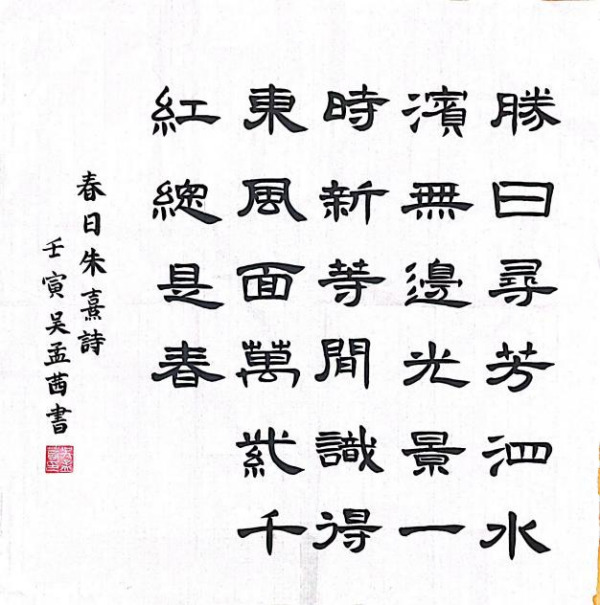 勝日尋芳泗水
濱無邊光景一
時新等閒識得
東風面萬紫千
紅總是春
春日朱熹詩
壬寅吴孟茜書